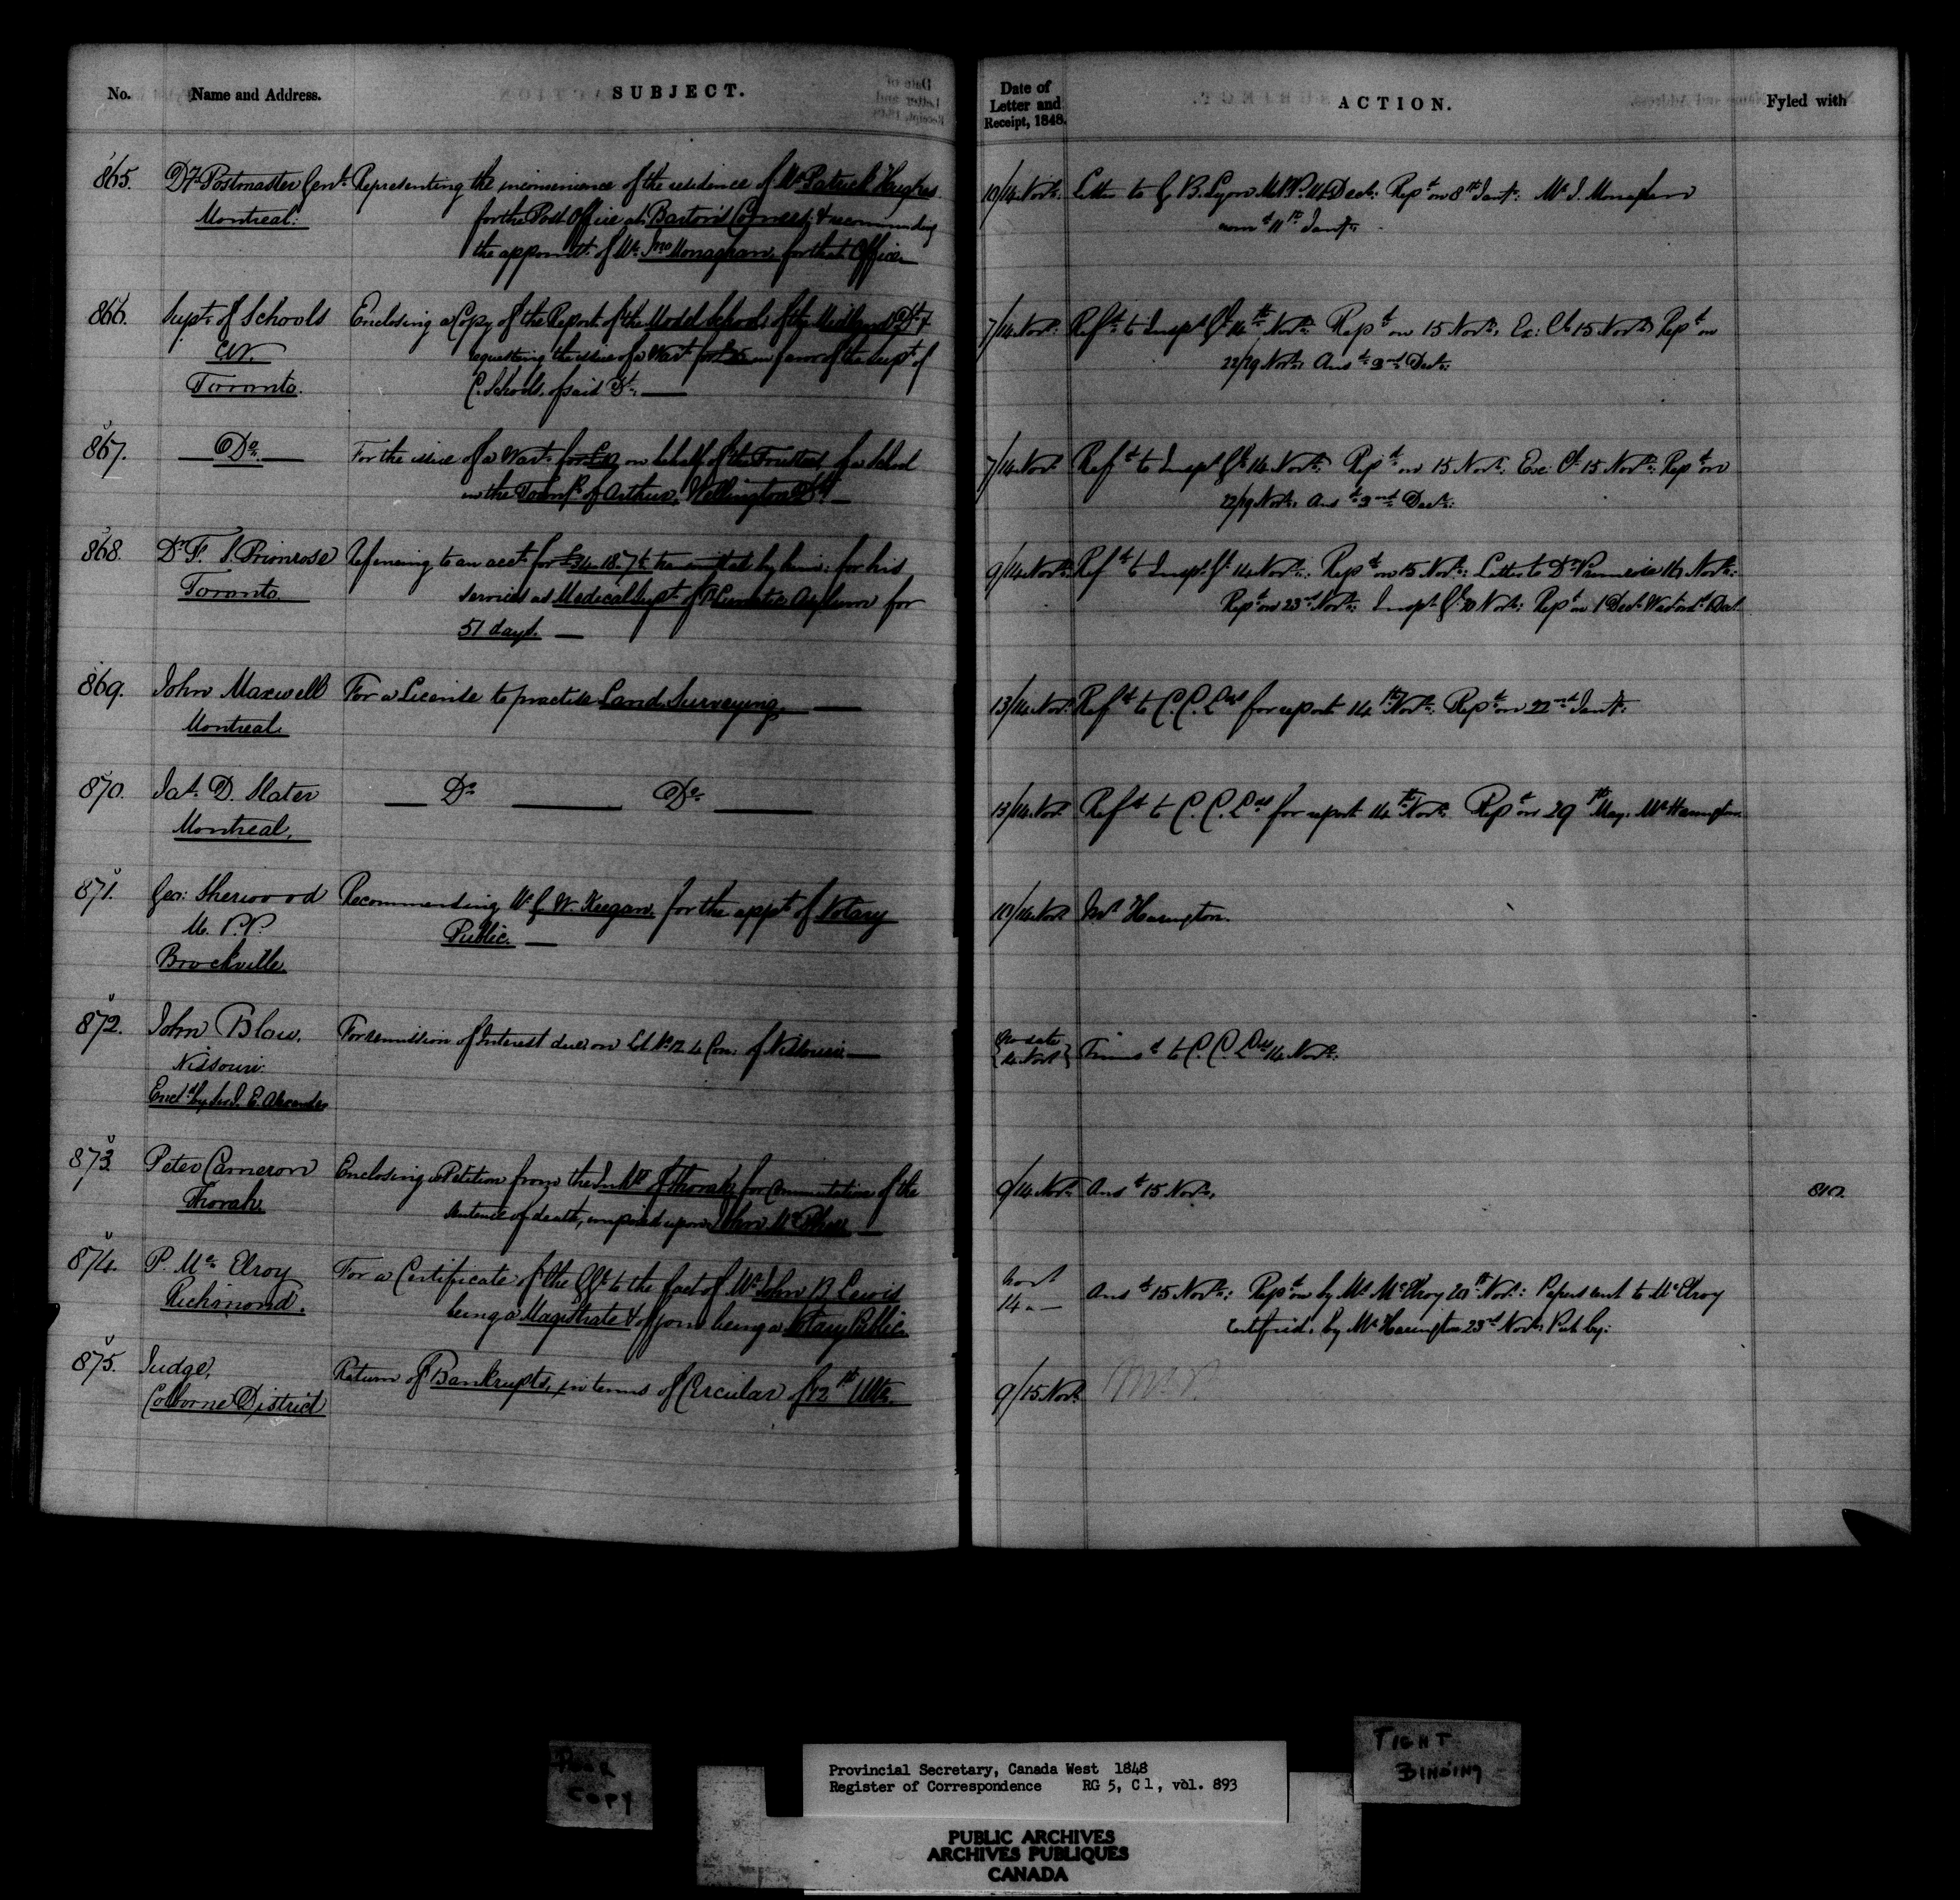 No. Name and Address. SUBJECT.
865. Dy. Postmaster Genl. Representing the inconvenience of the residence of Mr Patrick Hughes
Montreal. for the Post Office at Barton's Corners, & recommending
the appointt. of Mr. Jno Monaghan, for that Office.
866. Supt. of Schools Enclosing a Copy of the Report of the Model School of the Midland Dt. &
CW. requesting the issue of a Wart. in favor of the Supt. of
Toronto. C. Schools, of said Dt.
867. Do. For the issue of a Wart. on behalf of the Trustees of a School
in the Townp. of Arthur, Wellington Dt.
868. Dr. F. S. Primrose Referring to an acct. for £34.18.7 transmitted by him, for his
Toronto. Services as Medical Supt. of Lunatic Asylum for
51 days.
869. John Maxwell For a License to practise Land Surveying.
Montreal.
870. Jas. D. Slater Do. Do.
Montreal.
871. Geo: Sherwood Recommending Mr G. W. Keegan, for the appt. of Notary
M.P.P. Public.
Brockville.
872. John Blow, For remission of Interest due, on Lot No. 12 4 Con. of Nissouri
Nissouri.
Encd. by E. Alexander
873. Peter Cameron Enclosing a Petition from the Inhts. of Thorah, for Commutation of the
Thorah. Sentence of death, imposed upon John
874. P. Mc. Elroy For a Certificate of the Gt. to the fact of Mr. John B. Lewis
Richmond. being a Magistrate & of being a Notary Public.
875. Judge, Return of Bankrupts, in terms of Circular of 12th Ulto.
Colborne District
Date of Letter and Receipt, 1848. ACTION. Fyled with
10/14 Novr. Letter to G. B. Lyon M.P.P. Decr. Repd. on 8th Jany. Mr J. Monaghan
11th Jany.
7/14 Novr. Refd. to Inspr. Gl. 14th Novr. Repd. on 15 Novr. Ex: Cl. 15 Novr. Repd. on
22/29 Novr. Ansd. 2nd Decr.
7/14 Novr. Refd. to Inspr. Gl. 14 Novr. Repd. on 15 Novr. Exe: Cl. 15 Novr. Repd. on
22/29 Novr. Ansd. 2nd Decr.
9/14 Novr. Refd. to Inspr. Gl. 14 Novr. Repd. on 15 Novr. Letter to Dr. Primrose 16 Novr.
Repd. on 23rd Novr. Inspr. Gl. Novr. Repd. on 1 Decr.
13/14 Novr. Refd. to C. C. Lds for report 14th Novr. Repd. on 22nd Jany.
13/14 Novr. Refd. to C. C. Lds for report 14th Novr. Repd. on 29th May. Mr Harington
10/14 Novr. Mr Harington.
{No date
14 Novr} Transd. to C. C. Lds 14 Novr.
9/14 Novr. Ansd. 15 Novr. 810.
Novr
14 Ansd. 15 Novr. Repd. on by Mr. McElroy Novr. Papers sent to McElroy
Certified, by Mr Harington 23rd Novr. Put by.
9/15 Novr.
POOR
COPY
TIGHT
BINDING
Provincial Secretary, Canada West 1848
Register of Correspondence RG 5, C 1, vol. 893
PUBLIC ARCHIVES
ARCHIVES PUBLIQUES
CANADA